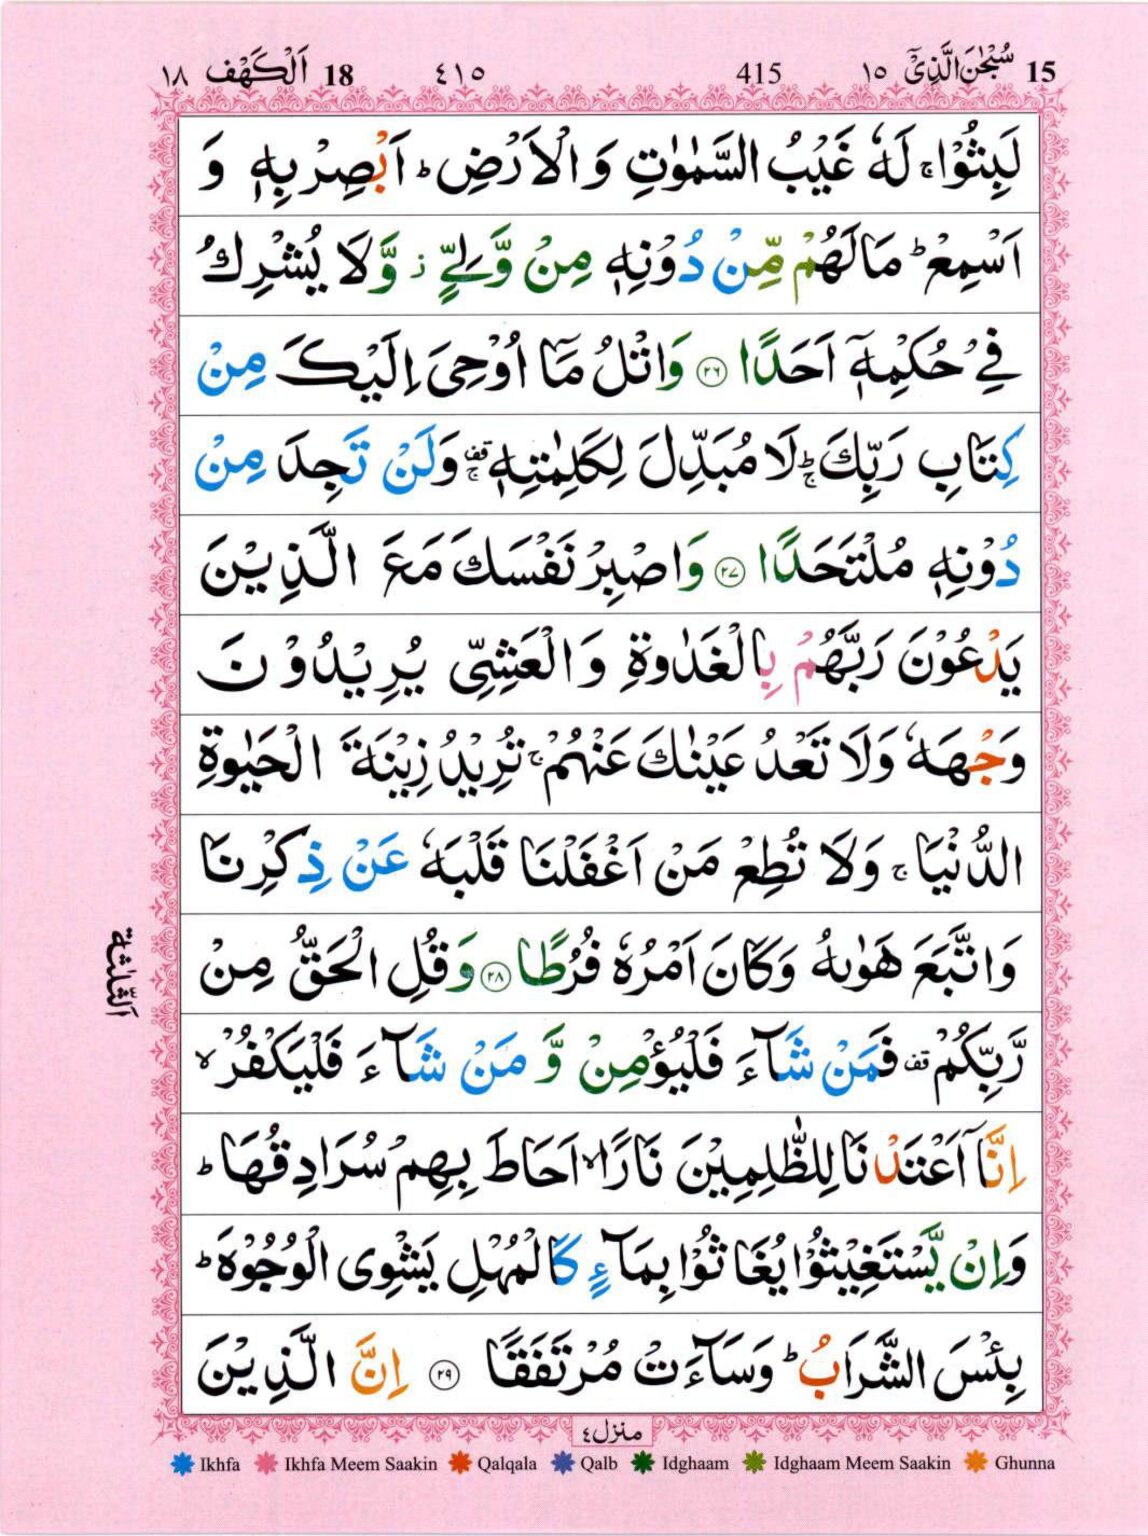 15 سُبْحٰنَ الَّذِیْۤ ١٥ 415 ٤١٥ 18 اَلْكَهْف ١٨
لَبِثُوْا ۚ لَهٗ غَیْبُ السَّمٰوٰتِ وَ الْاَرْضِ ؕ اَبْصِرْ بِهٖ وَ
اَسْمِعْ ؕ مَا لَهُمْ مِّنْ دُوْنِهٖ مِنْ وَّلِیٍّ ؗ وَّ لَا یُشْرِكُ
فِیْ حُكْمِهٖۤ اَحَدًا ۲۶ وَ اتْلُ مَاۤ اُوْحِیَ اِلَیْكَ مِنْ
كِتَابِ رَبِّكَ ؕۚ لَا مُبَدِّلَ لِكَلِمٰتِهٖ ۚ قف وَ لَنْ تَجِدَ مِنْ
دُوْنِهٖ مُلْتَحَدًا ۲۷ وَ اصْبِرْ نَفْسَكَ مَعَ الَّذِیْنَ
یَدْعُوْنَ رَبَّهُمْ بِالْغَدٰوةِ وَ الْعَشِیِّ یُرِیْدُوْنَ
وَجْهَهٗ وَ لَا تَعْدُ عَیْنٰكَ عَنْهُمْ ۚ تُرِیْدُ زِیْنَةَ الْحَیٰوةِ
الدُّنْیَا ۚ وَ لَا تُطِعْ مَنْ اَغْفَلْنَا قَلْبَهٗ عَنْ ذِكْرِنَا
وَ اتَّبَعَ هَوٰىهُ وَ كَانَ اَمْرُهٗ فُرُطًا ۲۸ وَ قُلِ الْحَقُّ مِنْ
اَلثَّلٰثَة
رَّبِّكُمْ قف فَمَنْ شَآءَ فَلْیُؤْمِنْ وَّ مَنْ شَآءَ فَلْیَكْفُرْ ۙ
اِنَّاۤ اَعْتَدْنَا لِلظّٰلِمِیْنَ نَارًا ۙ اَحَاطَ بِهِمْ سُرَادِقُهَا ؕ
وَ اِنْ یَّسْتَغِیْثُوْا یُغَاثُوْا بِمَآءٍ كَالْمُهْلِ یَشْوِی الْوُجُوْهَ ؕ
بِئْسَ الشَّرَابُ ؕ وَ سَآءَتْ مُرْتَفَقًا ۲۹ اِنَّ الَّذِیْنَ
منزل ٤
Ikhfa Ikhfa Meem Saakin Qalqala Qalb Idghaam Idghaam Meem Saakin Ghunna